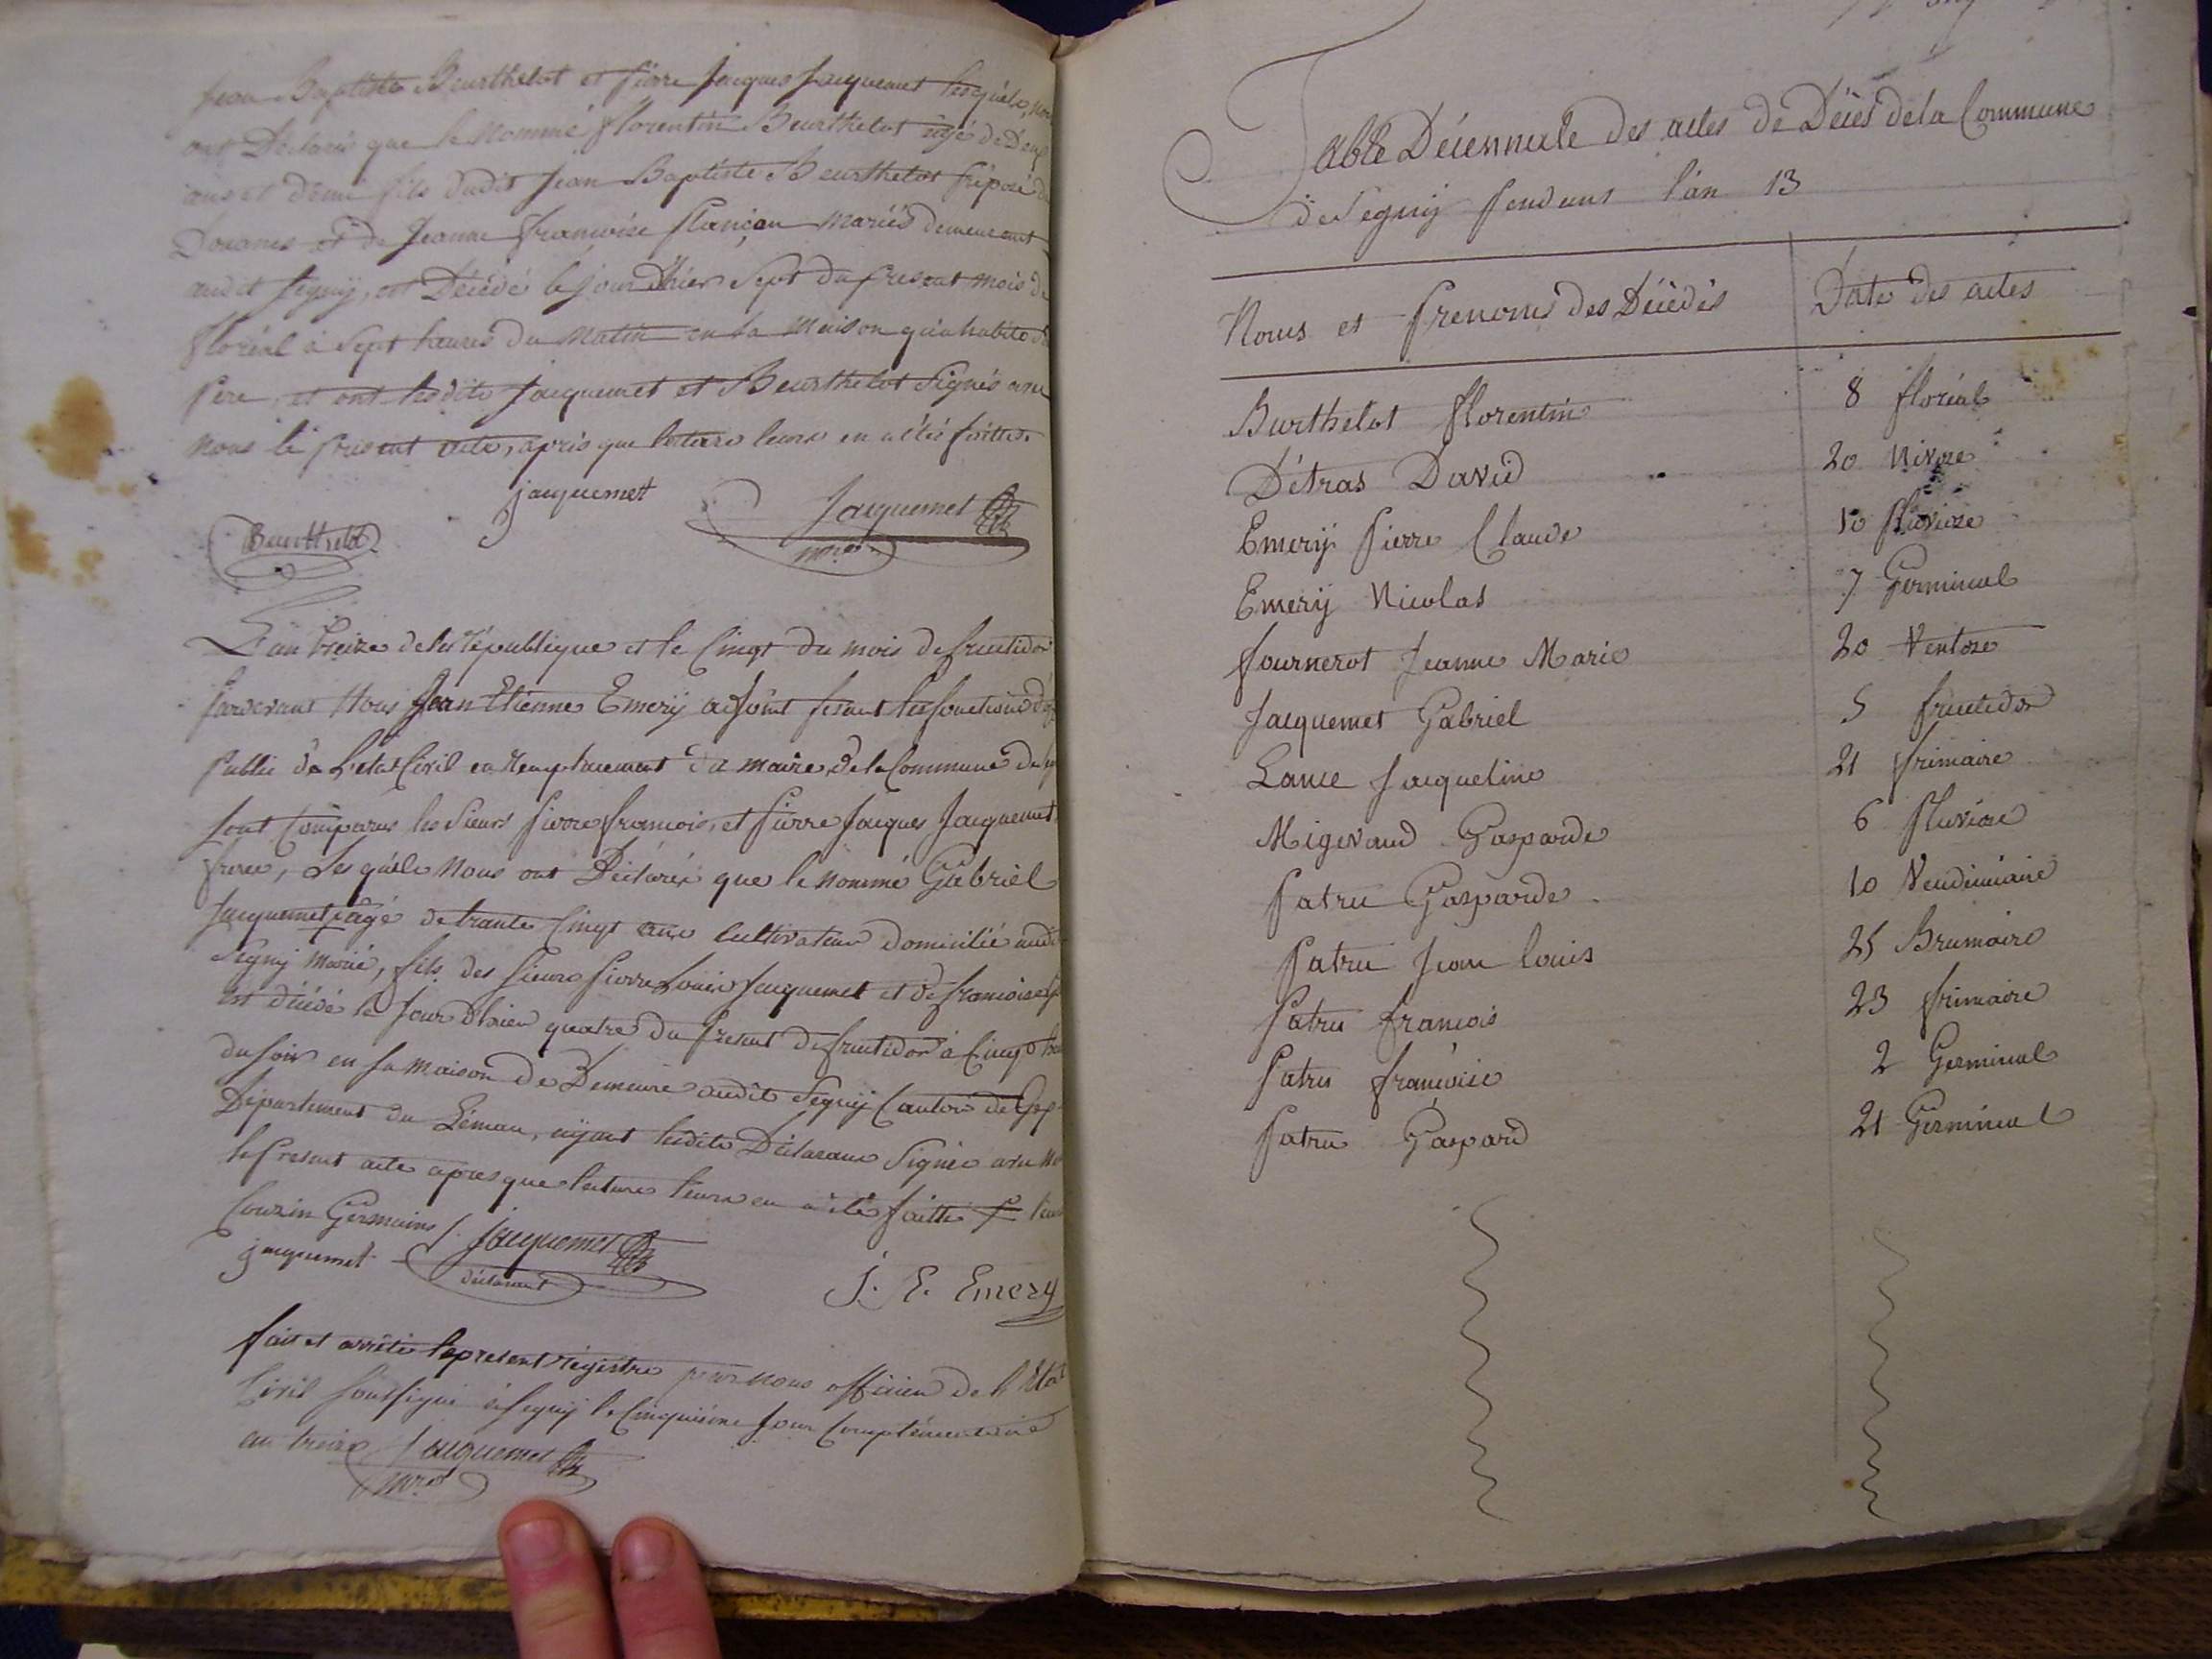 Jean Baptiste Beurthelot et Pierre Jacques Jacquemet lesquels nous
ont Déclarés que le Nommé florentin Beurthelot agé de Deux
ans et demi fils dudit Jean Baptiste Beurthelot préposé
Douanes et de Jeanne françoise Plançon mariés demeurant
audit Segnÿ, est Décédé le jour Dhier Sept du présent mois de
floréal à Sept heures du Matin en la maison qu'a habite
Pere, et ont lesdits Jacquemet et Beurthelot Signés avec
nous le present acte, après que lecture leurs en a étés faitte.
jacquemet
Jacquemet
Beurthelot
L'an treize de la république et le Cinq du mois de fructidor
Pardevant Nous Jean Etienne Emerÿ adjoint fesant les fonctions
Public de L'état Civil en Remplacement du maire de la Commune de
Sont Comparus les Sieurs Pierre francois, et Pierre Jacques Jacquemet
frere, Lesquels Nous ont Déclarés que le nommé Gabriel
Jacquemet agé de trante Cinq ans cultivateur domicilié audit
Segnÿ marié, fils des Sieurs Pierre Louis Jacquemet et de francoise
est décédé le Jour d'hier quatre du present de fructidor à Cinq
du Soir en sa maison de Demeure audit Segnÿ Canton de Gex
Département du Léman, ayant lesdits Déclarans Signés avec
le present acte apres que lecture leurs en a été faitte
Couzin Germains
jacquemet Jacquemet
déclarant
J. E. Emery
fait et arrêté le present régistre par nous officier de l'Etat
Civil Soussigné à Segnÿ le Cinquième Jour Complémentaire
an treize Jacquemet
Table Décennale des actes de Décès de la Commune
de Segnÿ Pendans l'an 13
Noms et Prenoms des Décédés Date des actes
Burthelot florentin 8 floréal
Détras David 20 Nivoze
Emerÿ Pierre Claude 10 Pluvioze
Emerÿ Nicolas 7 Germinal
fournerot Jeanne Marie 20 Ventose
Jacquemet Gabriel 5 fructidor
Lance Jacqueline 21 frimaire
Migevand Gasparde 6 Pluviose
Patru Gasparde 10 Vendémiaire
Patru Jean Louis 25 Brumaire
Patru francois 23 frimaire
Patru françoise 2 Germinal
Patru Gaspard 21 Germinal